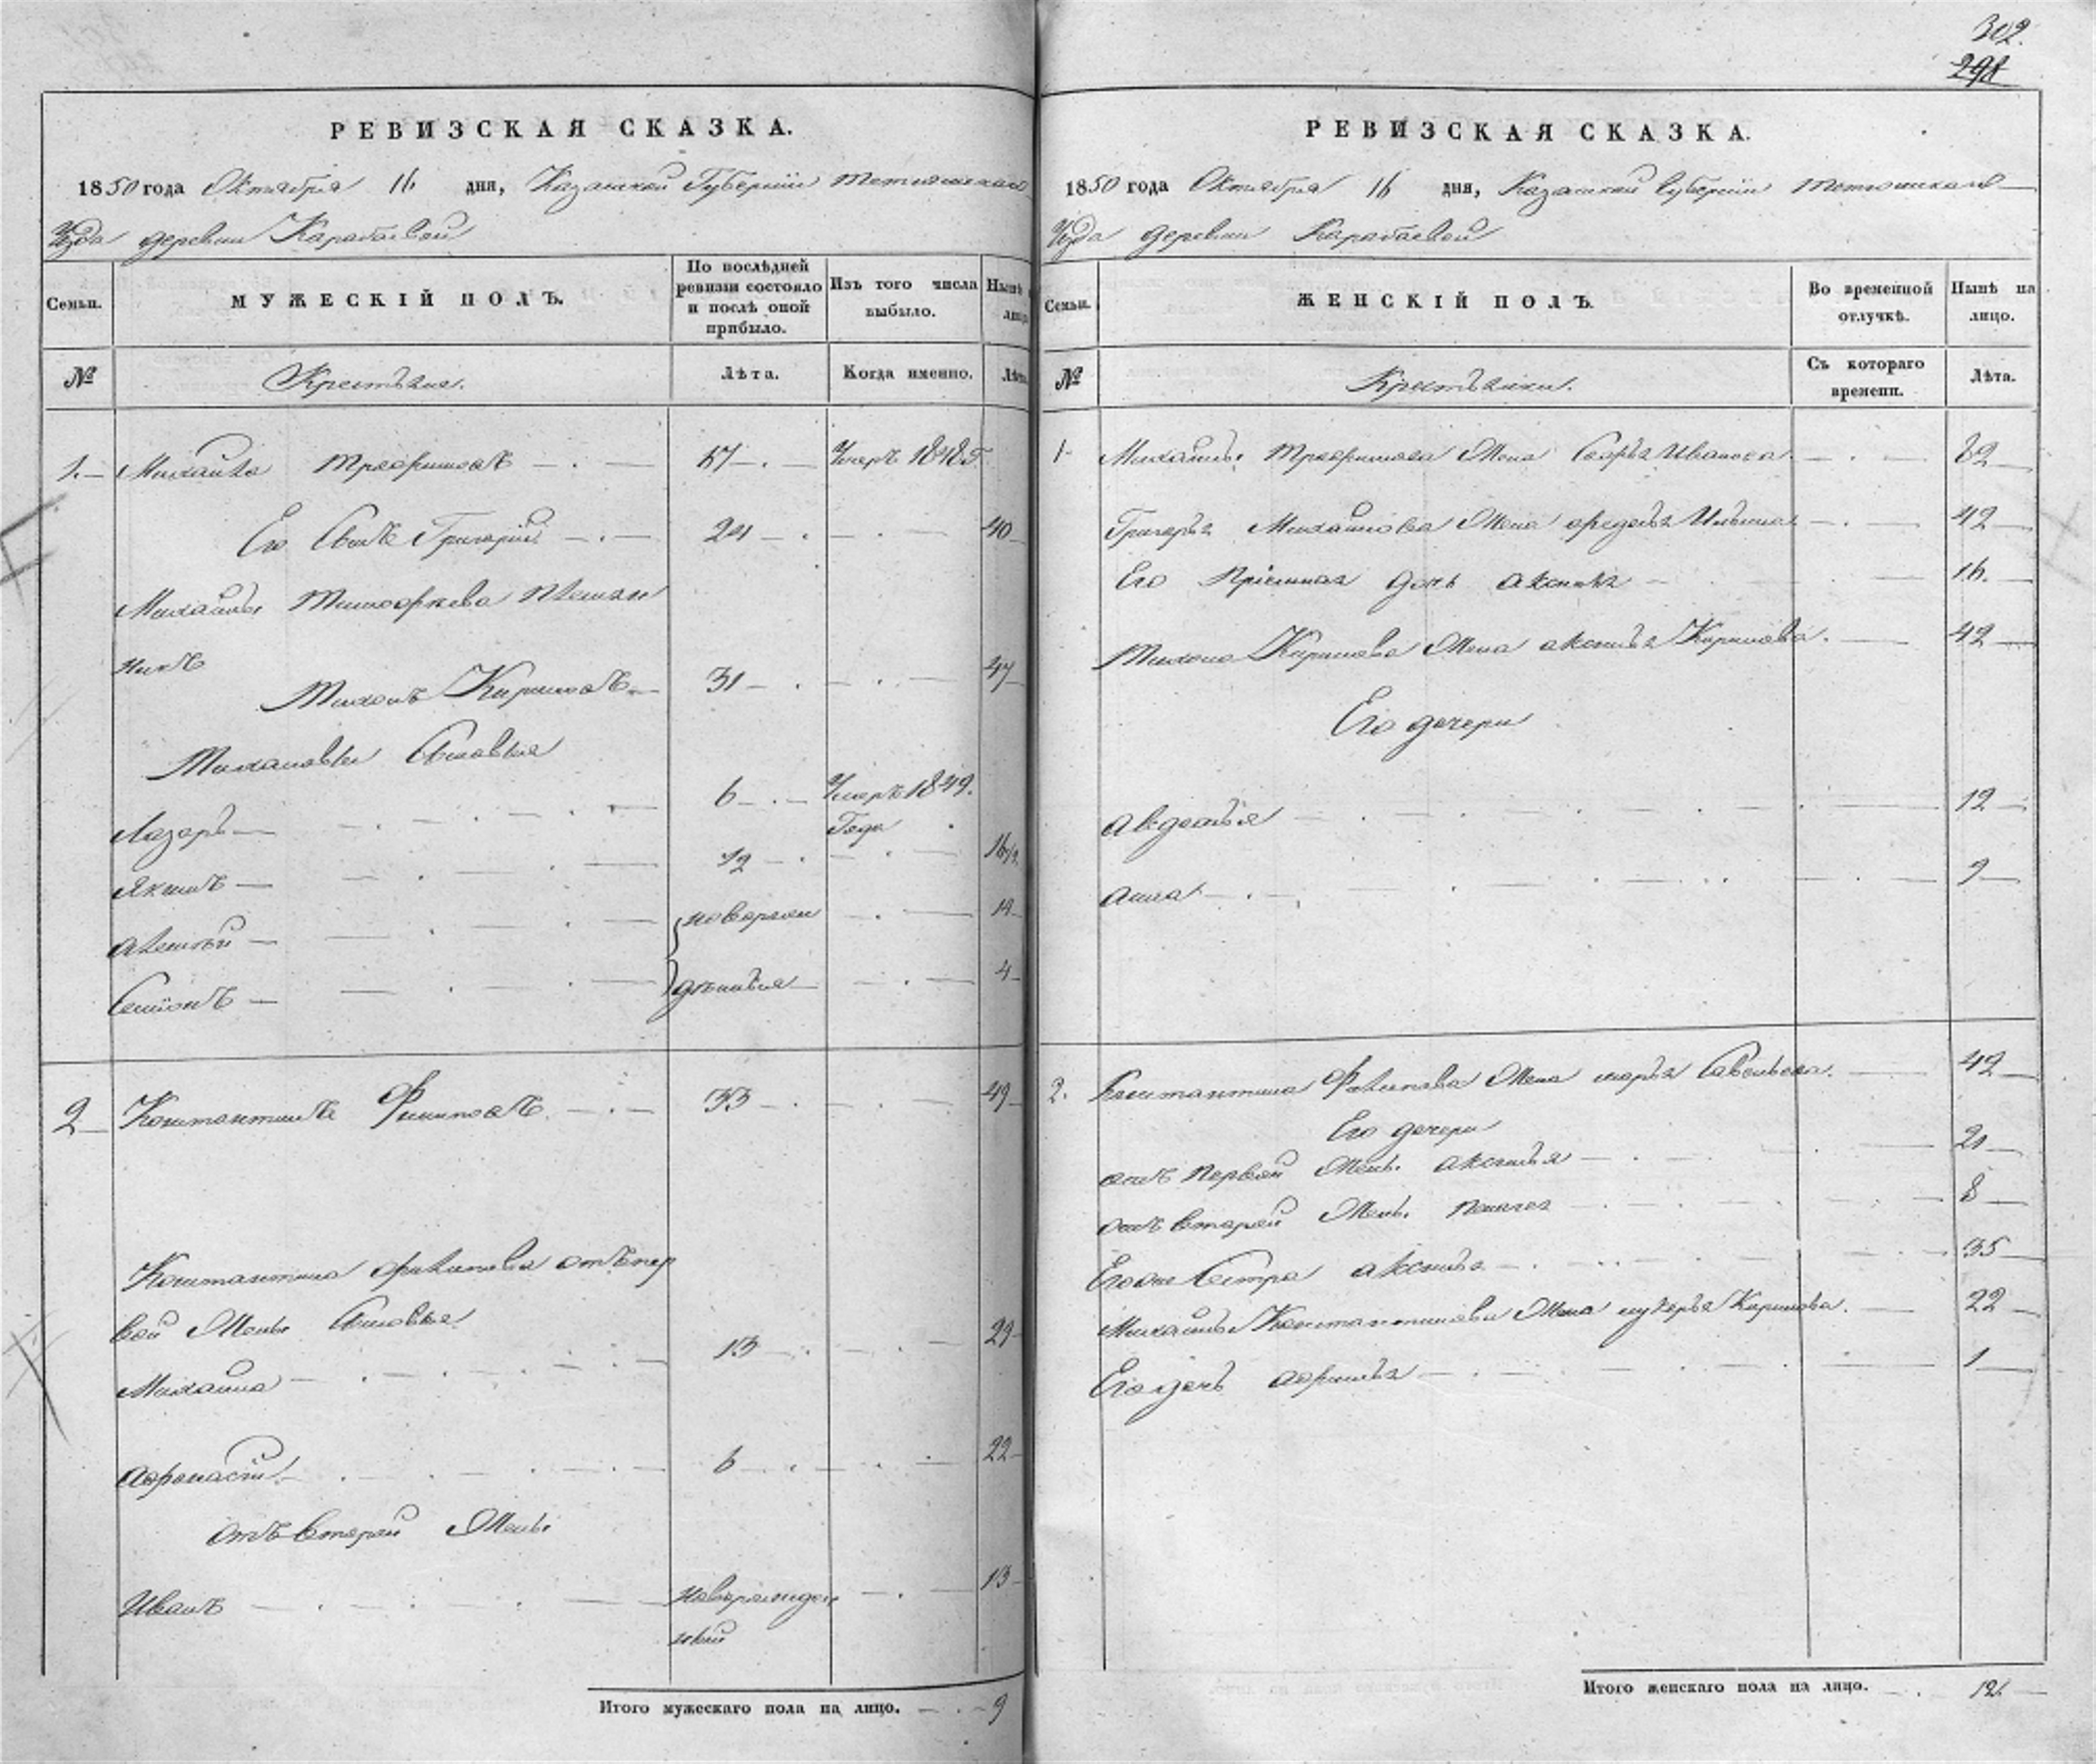 302.
298
РЕВИЗСКАЯ СКАЗКА.
1850 года Октября 16 дня, Казанской Губернiи Тетюшскаго
Уѣзда деревни Карабаевой
Семьи.
МУЖЕСКІЙ ПОЛЪ.
По послѣдней ревизіи состояло и послѣ оной прибыло.
Изъ того числа выбыло.
Нынѣ лицо
№
Крестьяне.
Лѣта.
Когда именно.
Лѣта
1. Михайла Трофимовъ 67 Умеръ 1848 г.
Его Сынъ Григорій 24 40
Михайлы Тимофеева племян
никъ
Тихонъ Кириловъ 31 47
Тихоновы Сыновья
Лазарь 6 Умеръ 1849.
Года
Якимъ 12 16 1/2
Алексѣй новорож 14
Семіонъ денныя 4
2 Константинъ Филиповъ 33 49
Константина Филипова отъ пер
вой Жены Сыновья
Михайла 13 29
Афонасiй 6 22
отъ второй Жены
Иванъ новорожден 13
ный
Итого мужескаго пола на лицо. 9
РЕВИЗСКАЯ СКАЗКА.
1850 года Октября 16 дня, Казанской Губернiи Тетюшскаго
Уѣзда деревни Карабаевой
Семьи.
ЖЕНСКІЙ ПОЛЪ.
Во временной отлучкѣ.
Нынѣ на лицо.
№
Крестьянки.
Съ котораго времени.
Лѣта.
1 Михайлы Трофимова Жена Иванова 82
Григорья Михайлова Жена Федосья Ильина 42
Его Пріемная дочь Аксинья 16.
Тихона Кирилова Жена Аксинья Кирилова. 42
Его дочери
Авдотья 12
Анна 9
2. Константина Филипова Жена Марья Савельева. 42
Его дочери
отъ Первой Жены Аксинья 21
отъ второй Жены Пелагея 8
Его же Сестра Аксинья 35
Михайлы Константинова Жена Лукерья Кирилова. 22
Его дочь Афимья 1
Итого женскаго пола на лицо. 12.